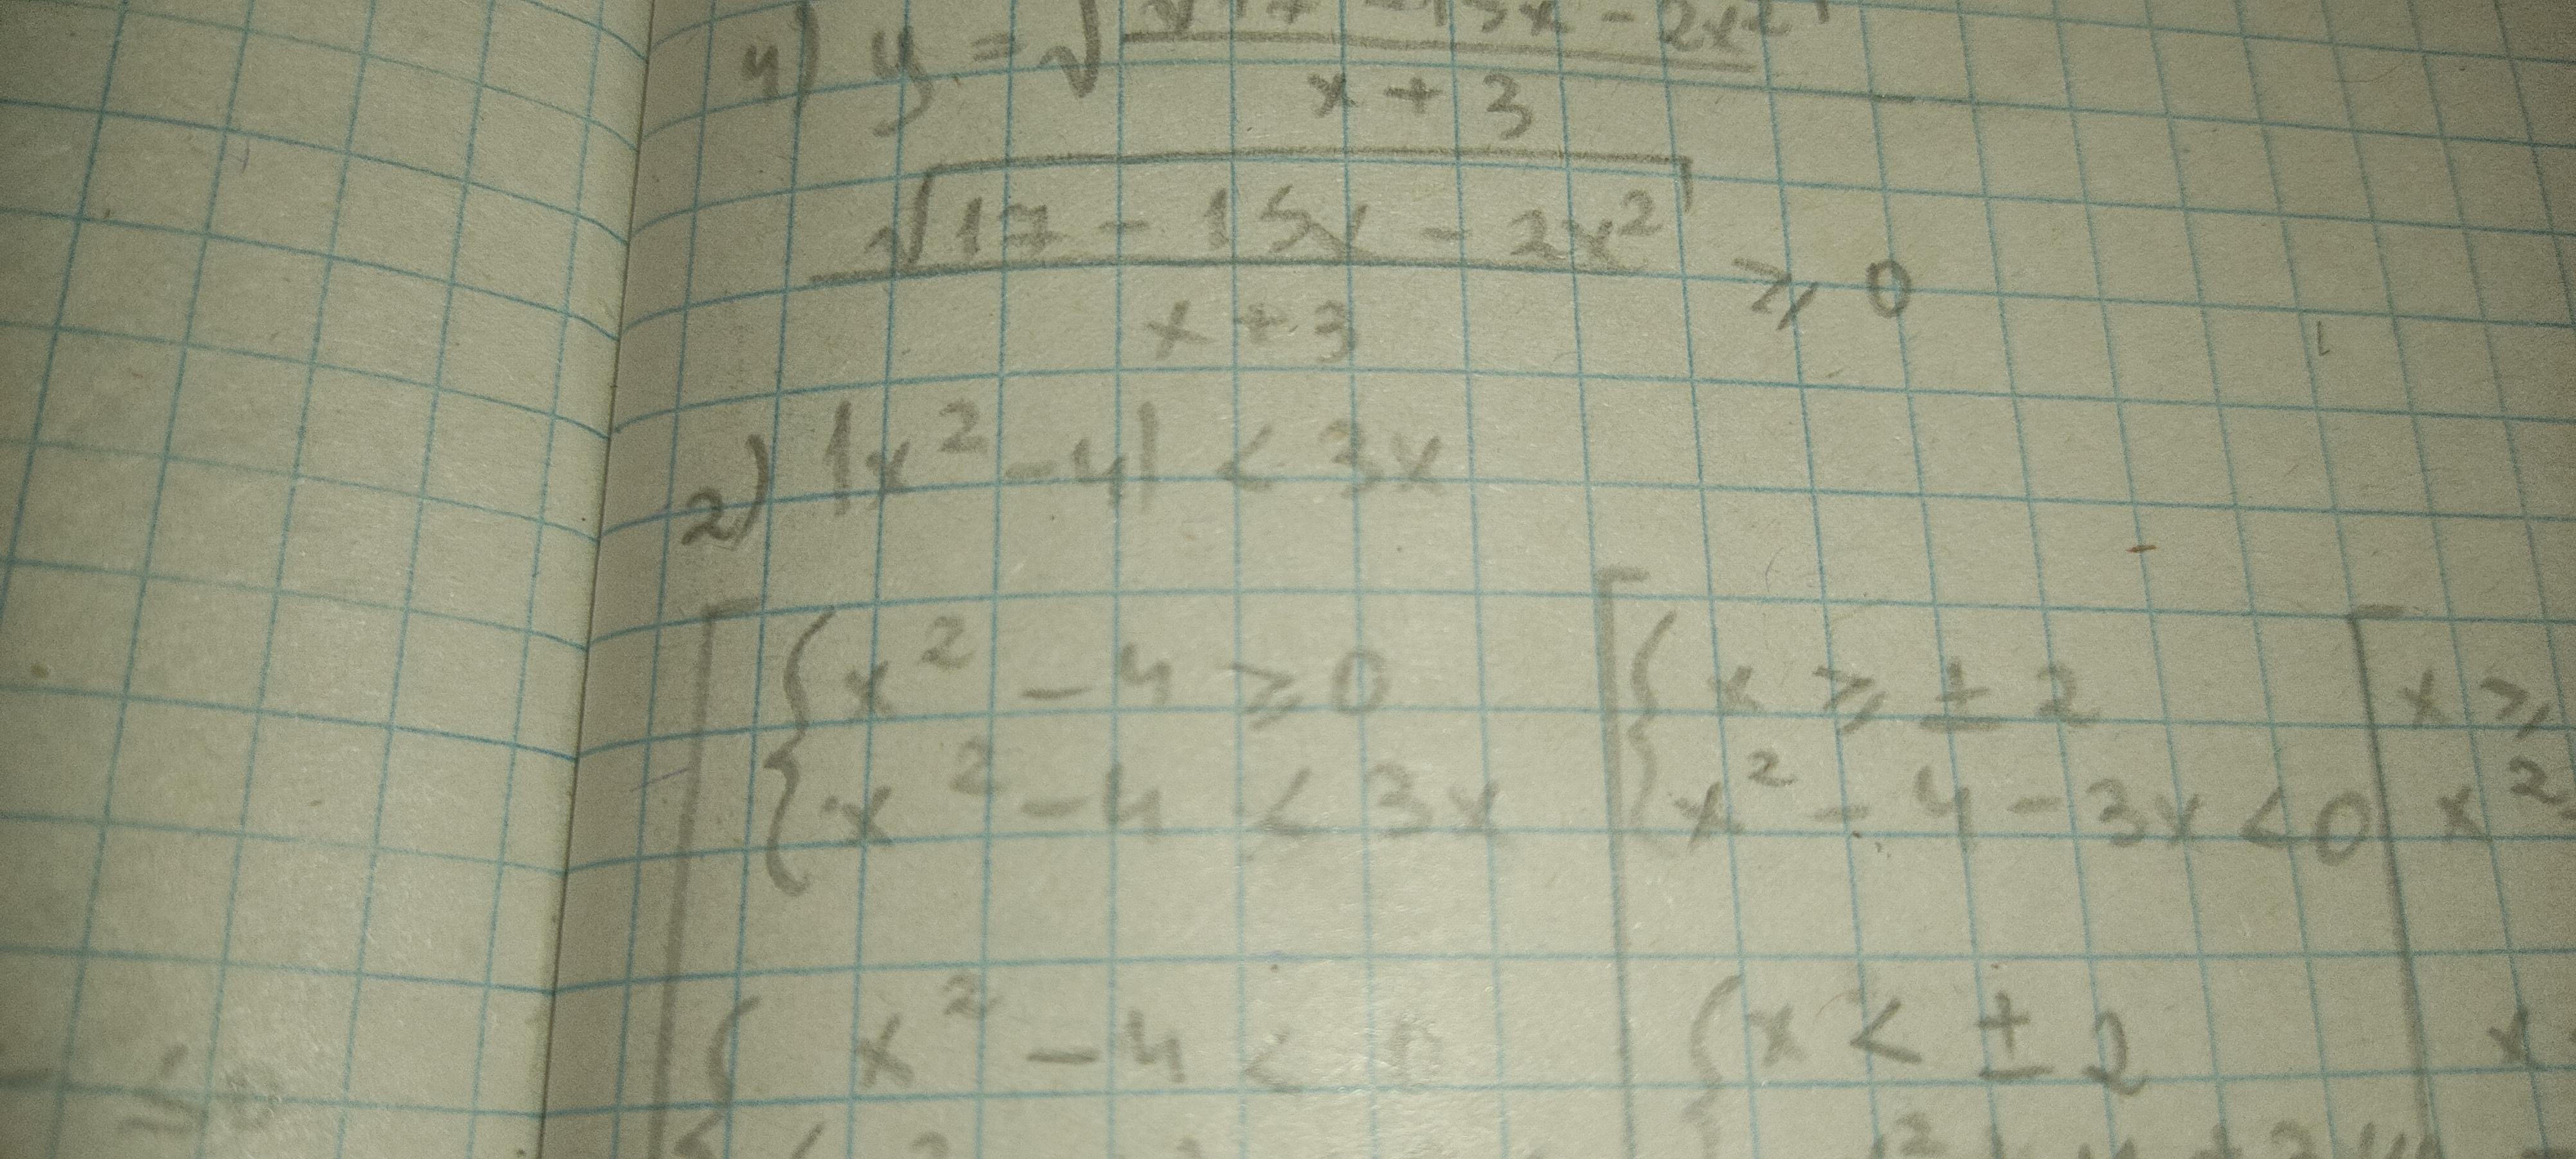 4) y = √ √17 - 15x - 2x²
x + 3
√17 - 15x - 2x² ⩾ 0
x + 3
2) |x² - 4| < 3x
[ { x² - 4 ⩾ 0 [ { x ⩾ ± 2 [ x ⩾
{ x² - 4 < 3x { x² - 4 - 3x < 0 x²
{ x² - 4 < { x < ± 2 x